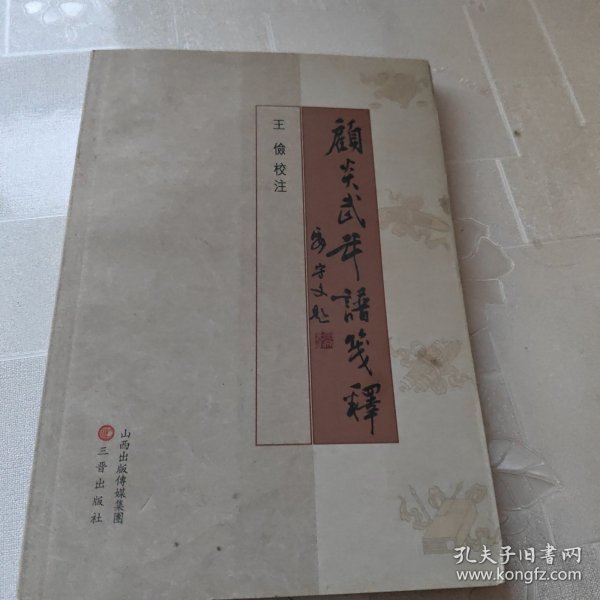 顧炎武年譜箋釋
王儉校注
山西出版傳媒集團
三晉出版社
孔夫子旧书网
www.kongfz.com